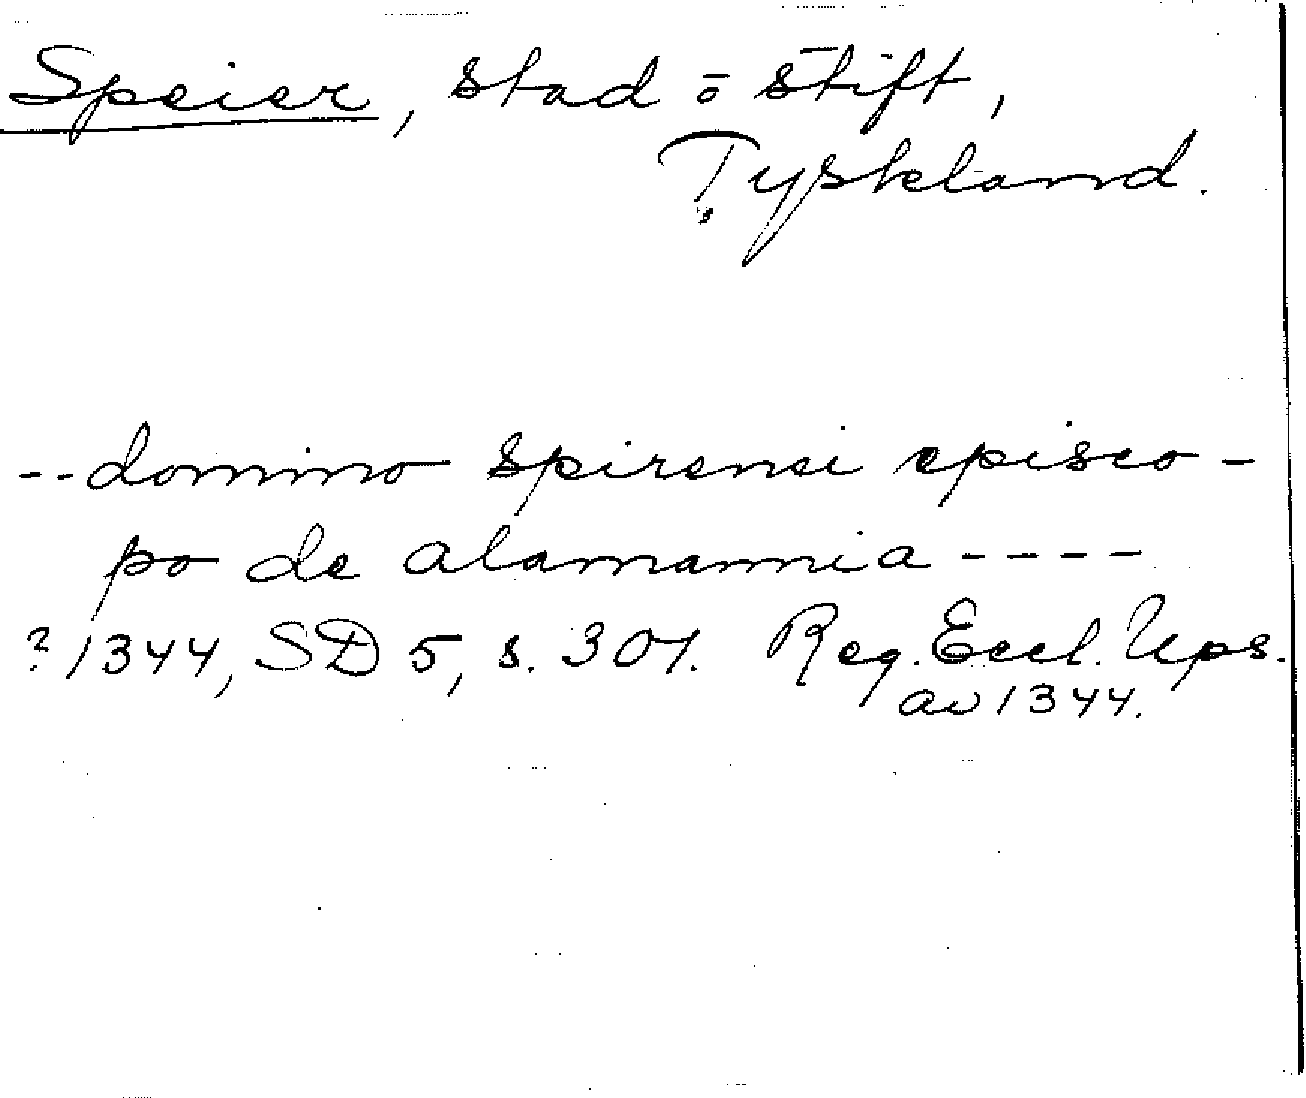 Speier, stad o stift,
Tyskland.
--domino spirensi episco-
po de alamannia----
? 1344, SD 5, s. 307. Reg. Eccl. Ups.
av 1344.